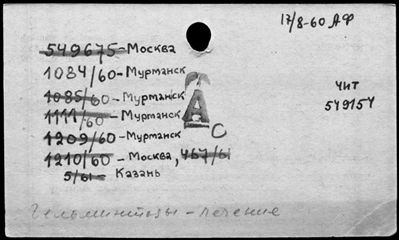 17/8-60 АФ
549675-Москва
1084/60-Мурманск
1085/60-Мурманск
1111/60-Мурманск
1209/60-Мурманск
1210/60-Москва, 457/61
5/61- Казань
чит
549154
А
С
Гельминтозы-лечение